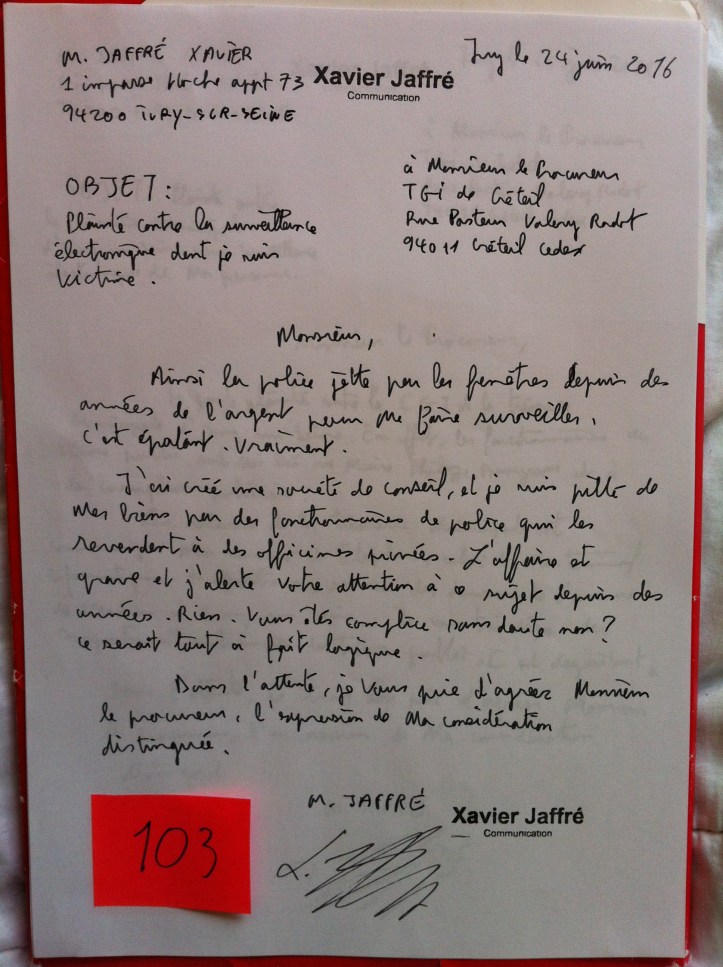 M. JAFFRÉ XAVIER
1 impasse Hoche appt 73
94200 IVRY-SUR-SEINE
Xavier Jaffré
Communication
Ivry le 24 juin 2016
OBJET :
Plainte contre la surveillance
électronique dont je suis
victime.
à Monsieur le Procureur
TGI de Créteil
Rue Pasteur Valery Radot
94011 Créteil Cedex
Monsieur,
Ainsi la police jette par les fenêtres depuis des
années de l'argent pour me faire surveiller,
c'est épatant. Vraiment.
J'ai créé une société de conseil, et je suis pillé de
mes biens par des fonctionnaires de police qui les
revendent à des officines privées. L'affaire est
grave et j'alerte votre attention à ce sujet depuis des
années. Rien. Vous êtes complice sans doute non ?
ce serait tout à fait logique.
Dans l'attente, je vous prie d'agréer Monsieur
le procureur, l'expression de ma considération
distinguée.
M. JAFFRÉ
Xavier Jaffré
Communication
103